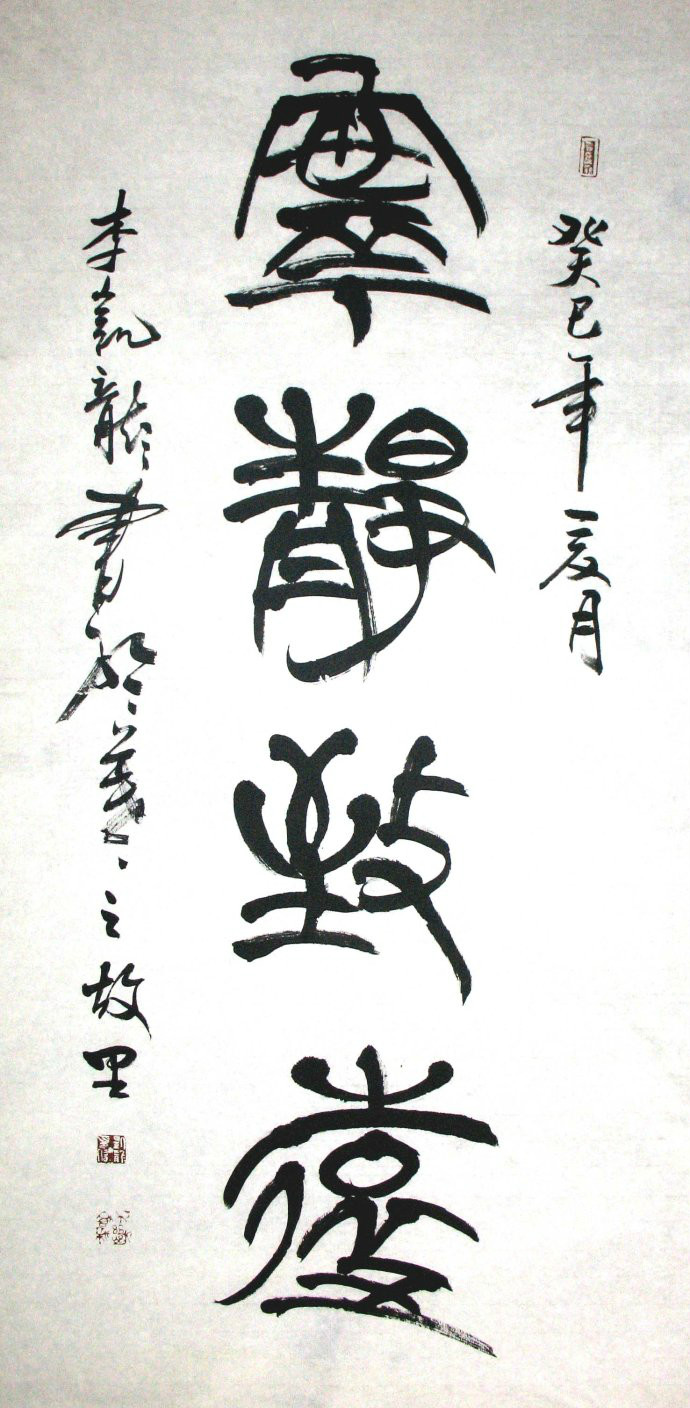 癸巳年夏月
寧靜致遠
李凱龍書於姜之故里